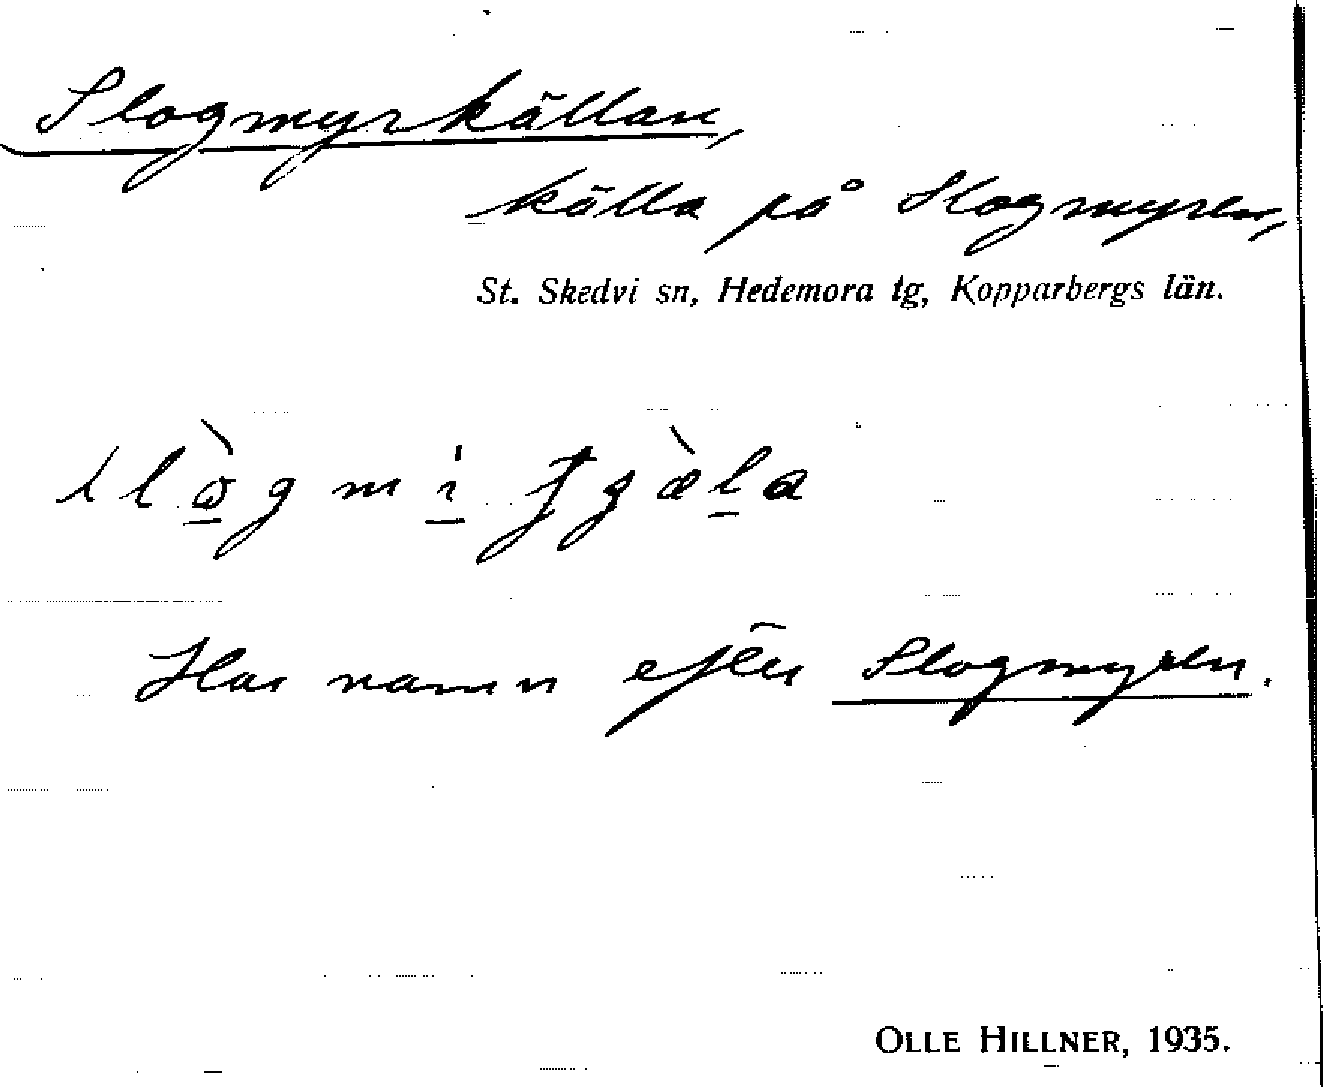 Slogmyrkällan,
källa på Slogmyren,
St. Skedvi sn, Hedemora tg, Kopparbergs län.
Har namn efter Slogmyren.
OLLE HILLNER, 1935.